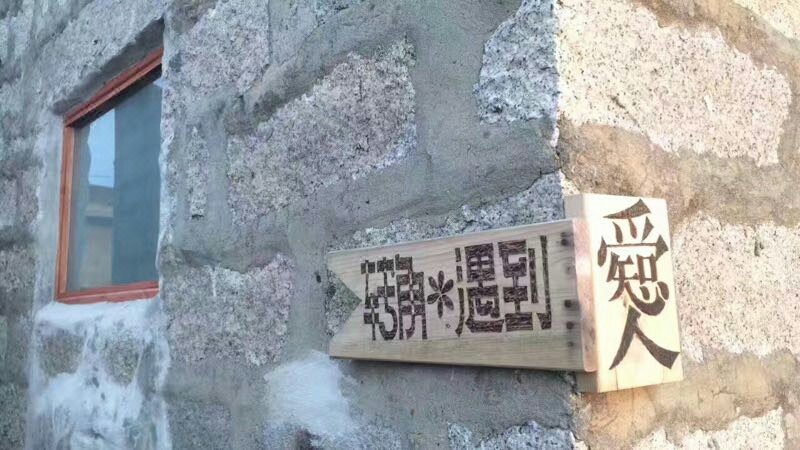 转角*遇到
愛人